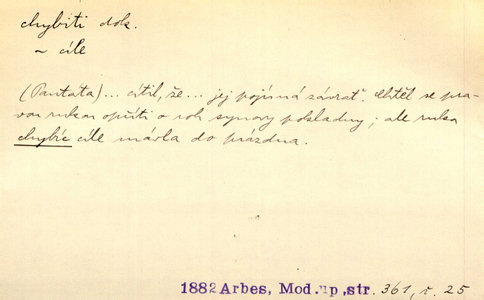 chybiti dok.
~ cíle
(Pantata)... cítil, že... jej pojímá závrať. Chtěl se pra-
vou rukou opříti o roh synovy pokladny; ale ruka
chybíc cíle mávla do prázdna.
1882 Arbes, Mod.up., str. 361, ř. 25